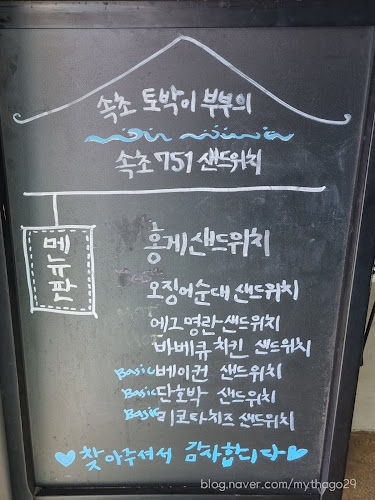 속초 토박이 부부의
속초 751 샌드위치
메뉴판
홍게샌드위치
오징어순대 샌드위치
에그명란샌드위치
바베큐치킨 샌드위치
Basic 베이컨 샌드위치
Basic 단호박 샌드위치
Basic 리코타치즈 샌드위치
찾아주셔서 감사합니다
blog.naver.com/mythago29